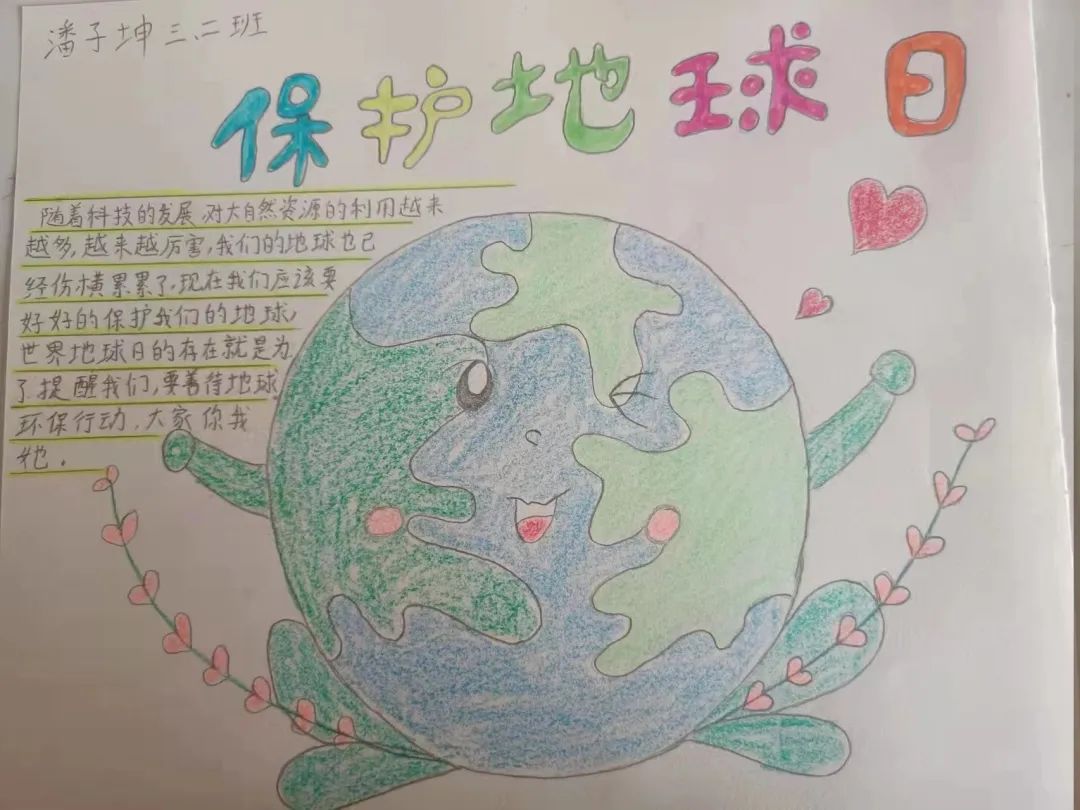 潘子坤三、二班
保护地球日
随着科技的发展,对大自然资源的利用越来
越多,越来越厉害,我们的地球也已
经伤横累累了,现在我们应该要
好好的保护我们的地球,
世界地球日的存在就是为
了提醒我们,要善待地球
环保行动,大家你我
她。